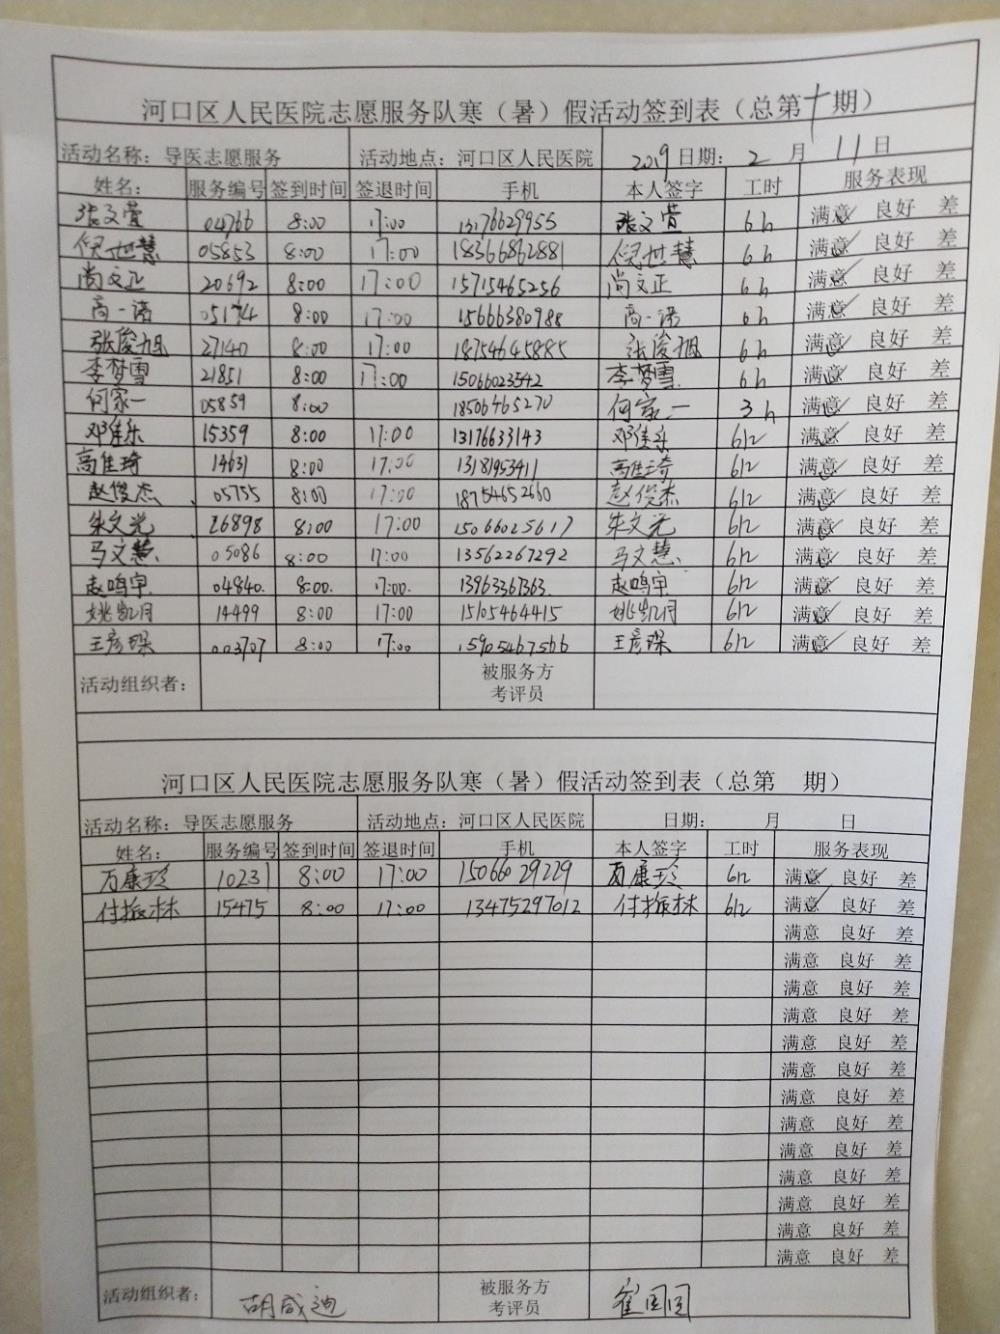 河口区人民医院志愿服务队寒（暑）假活动签到表（总第十期）
活动名称：导医志愿服务 活动地点：河口区人民医院 2019日期：2月11日
姓名： 服务编号 签到时间 签退时间 手机 本人签字 工时 服务表现
张文萱 04766 8:00 17:00 13176629955 张文萱 6h 满意 良好 差
倪世慧 05853 8:00 17:00 18366862881 倪世慧 6h 满意 良好 差
尚文正 20692 8:00 17:00 15715465256 尚文正 6h 满意 良好 差
高一诺 05174 8:00 17:00 15666380988 高一诺 6h 满意 良好 差
张俊旭 27140 8:00 17:00 18754645885 张俊旭 6h 满意 良好 差
李梦雪 21851 8:00 17:00 15066023542 李梦雪 6h 满意 良好 差
何家一 05859 8:00 18506465270 何家一 3h 满意 良好 差
邓佳乐 15359 8:00 17:00 13176633143 邓佳乐 6h 满意 良好 差
高佳琦 14631 8:00 17:00 13181953411 高佳琦 6h 满意 良好 差
赵俊杰 05755 8:00 17:00 18754652660 赵俊杰 6h 满意 良好 差
朱文光 26898 8:00 17:00 15066025617 朱文光 6h 满意 良好 差
马文慧 05086 8:00 17:00 13562267292 马文慧 6h 满意 良好 差
赵鸣宇 04840 8:00 17:00 13963361363 赵鸣宇 6h 满意 良好 差
姚凯月 14499 8:00 17:00 15105464415 姚凯月 6h 满意 良好 差
王彦琛 003707 8:00 17:00 15905467566 王彦琛 6h 满意 良好 差
活动组织者： 被服务方
考评员
河口区人民医院志愿服务队寒（暑）假活动签到表（总第 期）
活动名称：导医志愿服务 活动地点：河口区人民医院 日期： 月 日
姓名： 服务编号 签到时间 签退时间 手机 本人签字 工时 服务表现
万康玲 10231 8:00 17:00 15066029229 万康玲 6h 满意 良好 差
付振林 15475 8:00 17:00 13475297012 付振林 6h 满意 良好 差
满意 良好 差
满意 良好 差
满意 良好 差
满意 良好 差
满意 良好 差
满意 良好 差
满意 良好 差
满意 良好 差
满意 良好 差
满意 良好 差
满意 良好 差
满意 良好 差
满意 良好 差
活动组织者： 胡成迪 被服务方 崔园园
考评员